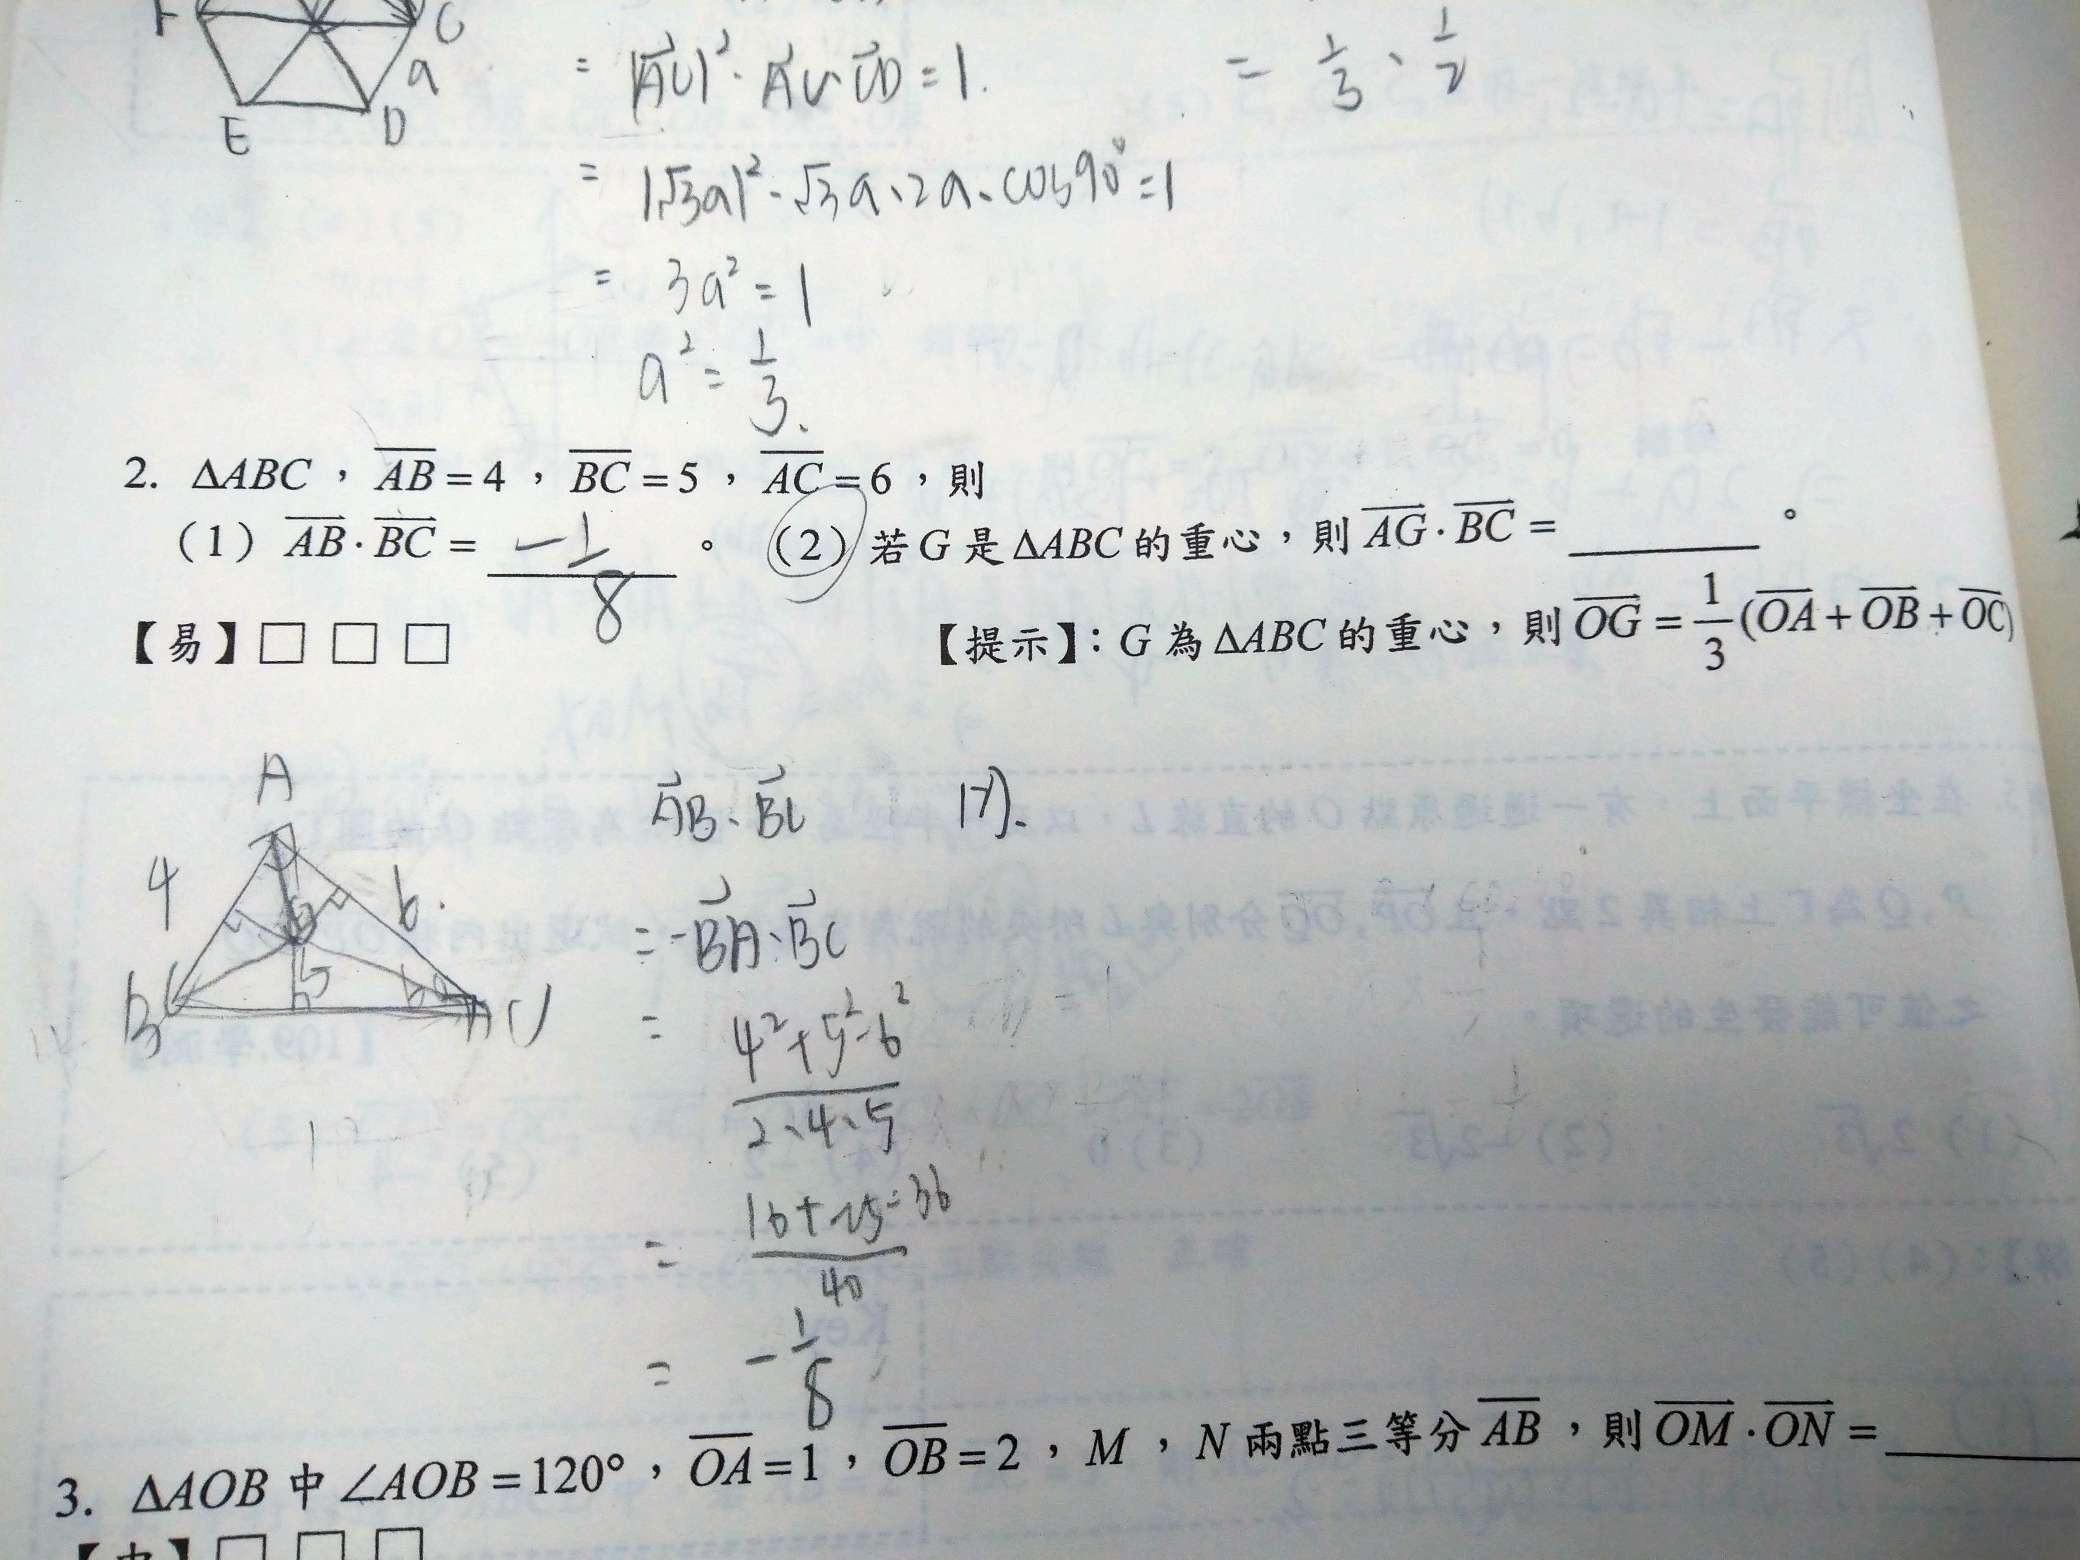 F C
a
E D
= |AC|² · AC · CD = 1.
= 1/3 · 1/2
= |√3a|² · √3a · 2a · cos90° = 1
= 3a² = 1
a² = 1/3.
2. ΔABC，AB=4，BC=5，AC=6，則
（1）AB·BC= -1/8 。（2）若G是ΔABC的重心，則AG·BC= ______ 。
【易】□ □ □
【提示】：G為ΔABC的重心，則OG=1/3(OA+OB+OC)
A
4 6.
B G C
AB · BC
= -BA · BC
= 4²+5²-6² / 2·4·5
= 16+25-36 / 40
= -1/8
3. ΔAOB中∠AOB=120°，OA=1，OB=2，M，N兩點三等分AB，則OM·ON= ______
【中】□ □ □